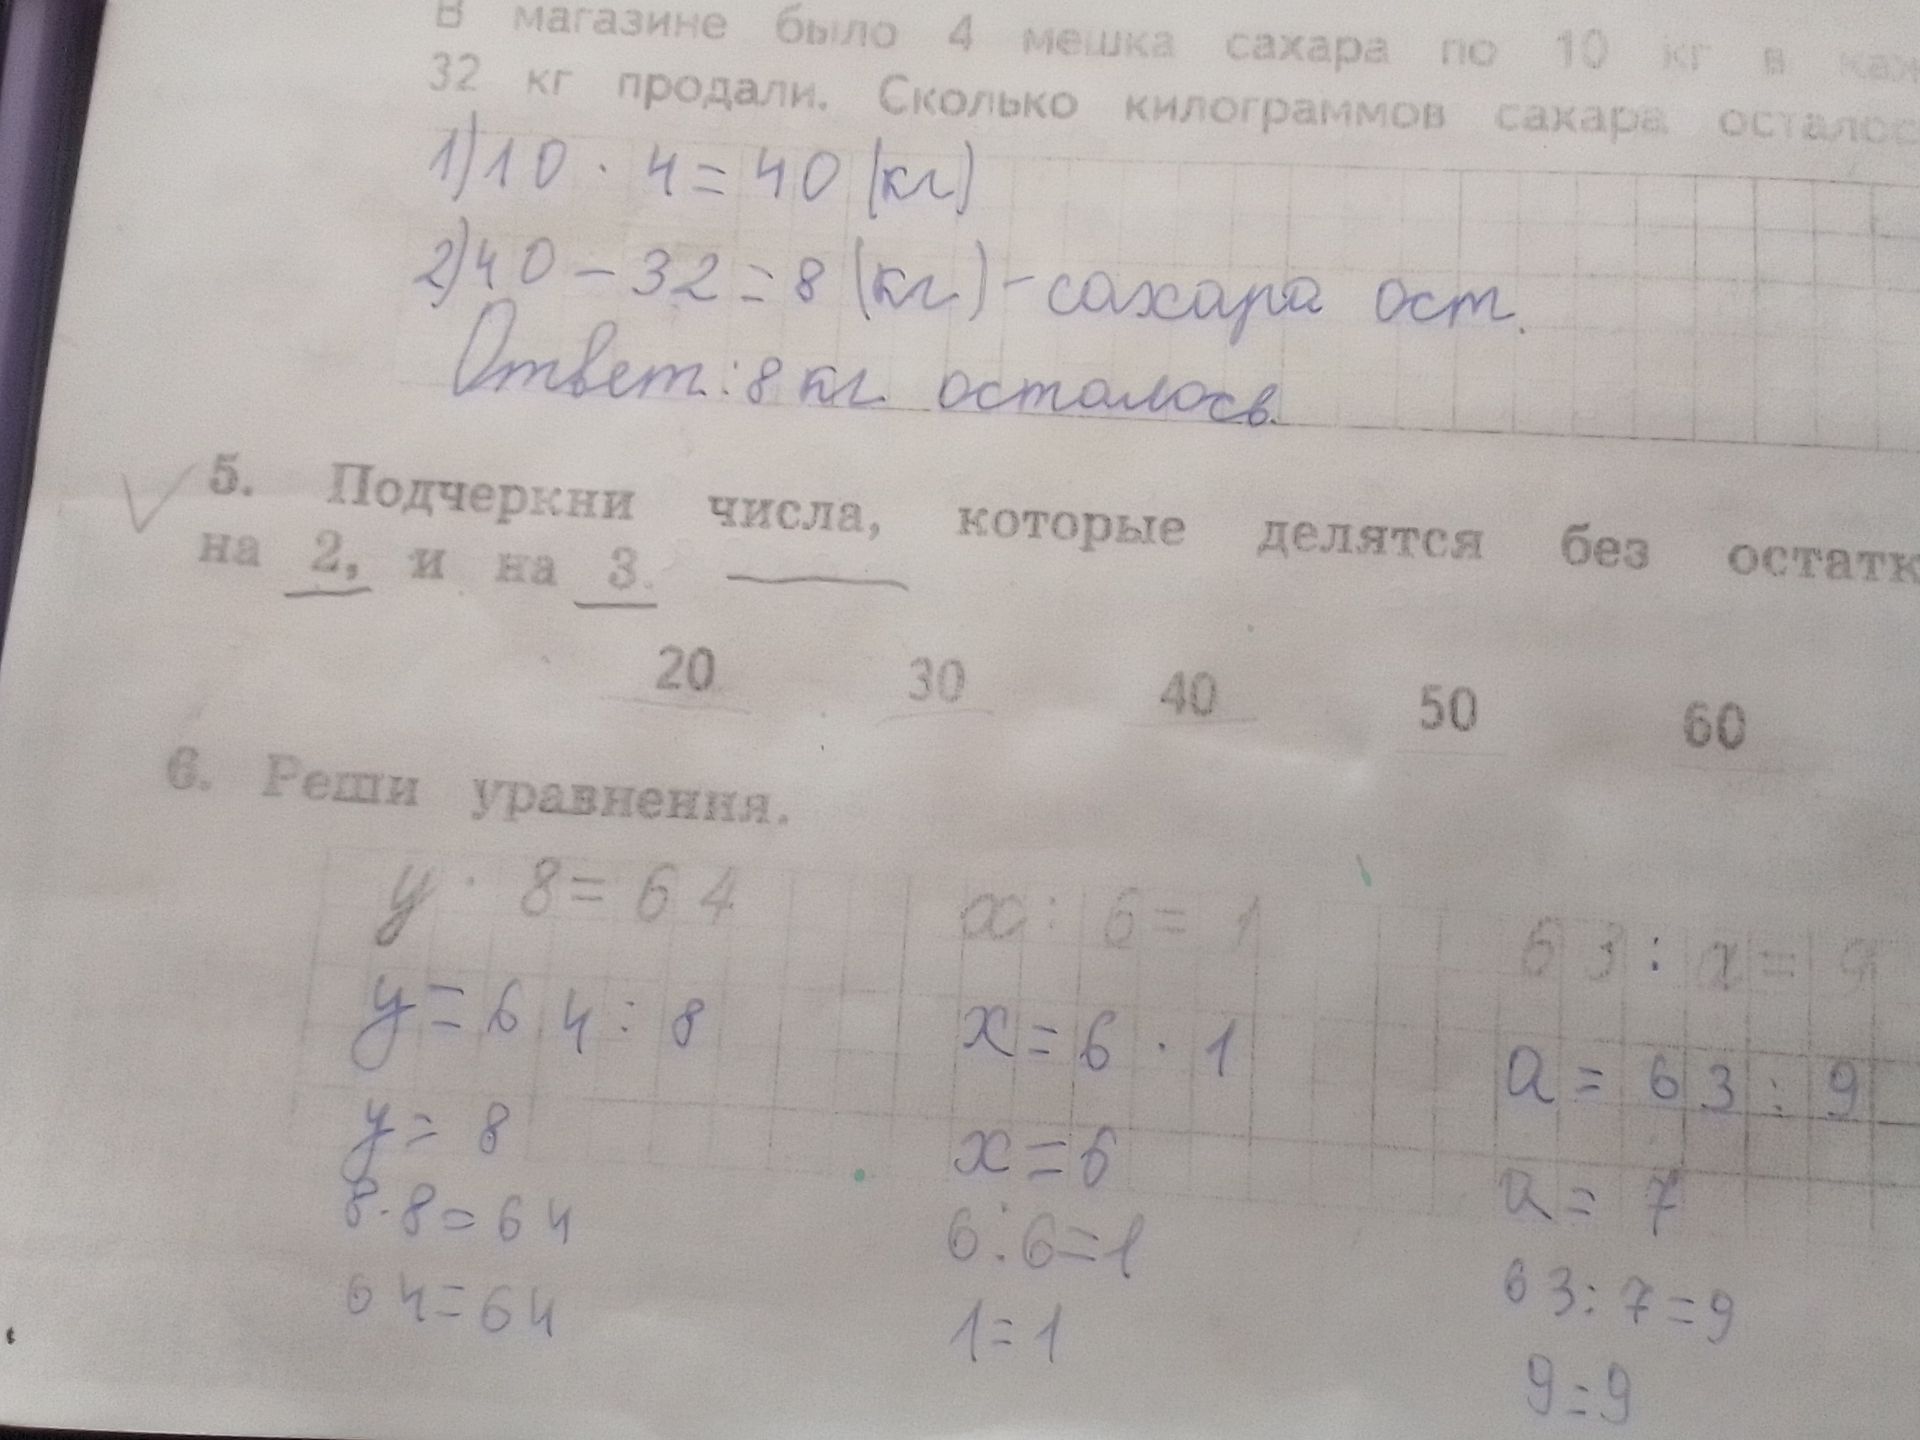 В магазине было 4 мешка сахара по 10 кг в
32 кг продали. Сколько килограммов сахара осталос
1) 10 · 4 = 40 (кг)
2) 40 – 32 = 8 (кг) – сахара ост.
Ответ: 8 кг осталось.
5. Подчеркни числа, которые делятся без остатк
на 2, и на 3.
20 30 40 50 60
6. Реши уравнения.
y · 8 = 64 x : 6 = 1 63 : x = 9
y = 64 : 8 x = 6 · 1 a = 63 : 9
y = 8 x = 6 a = 7
8 · 8 = 64 6 : 6 = 1 63 : 7 = 9
64 = 64 1 = 1 9 = 9